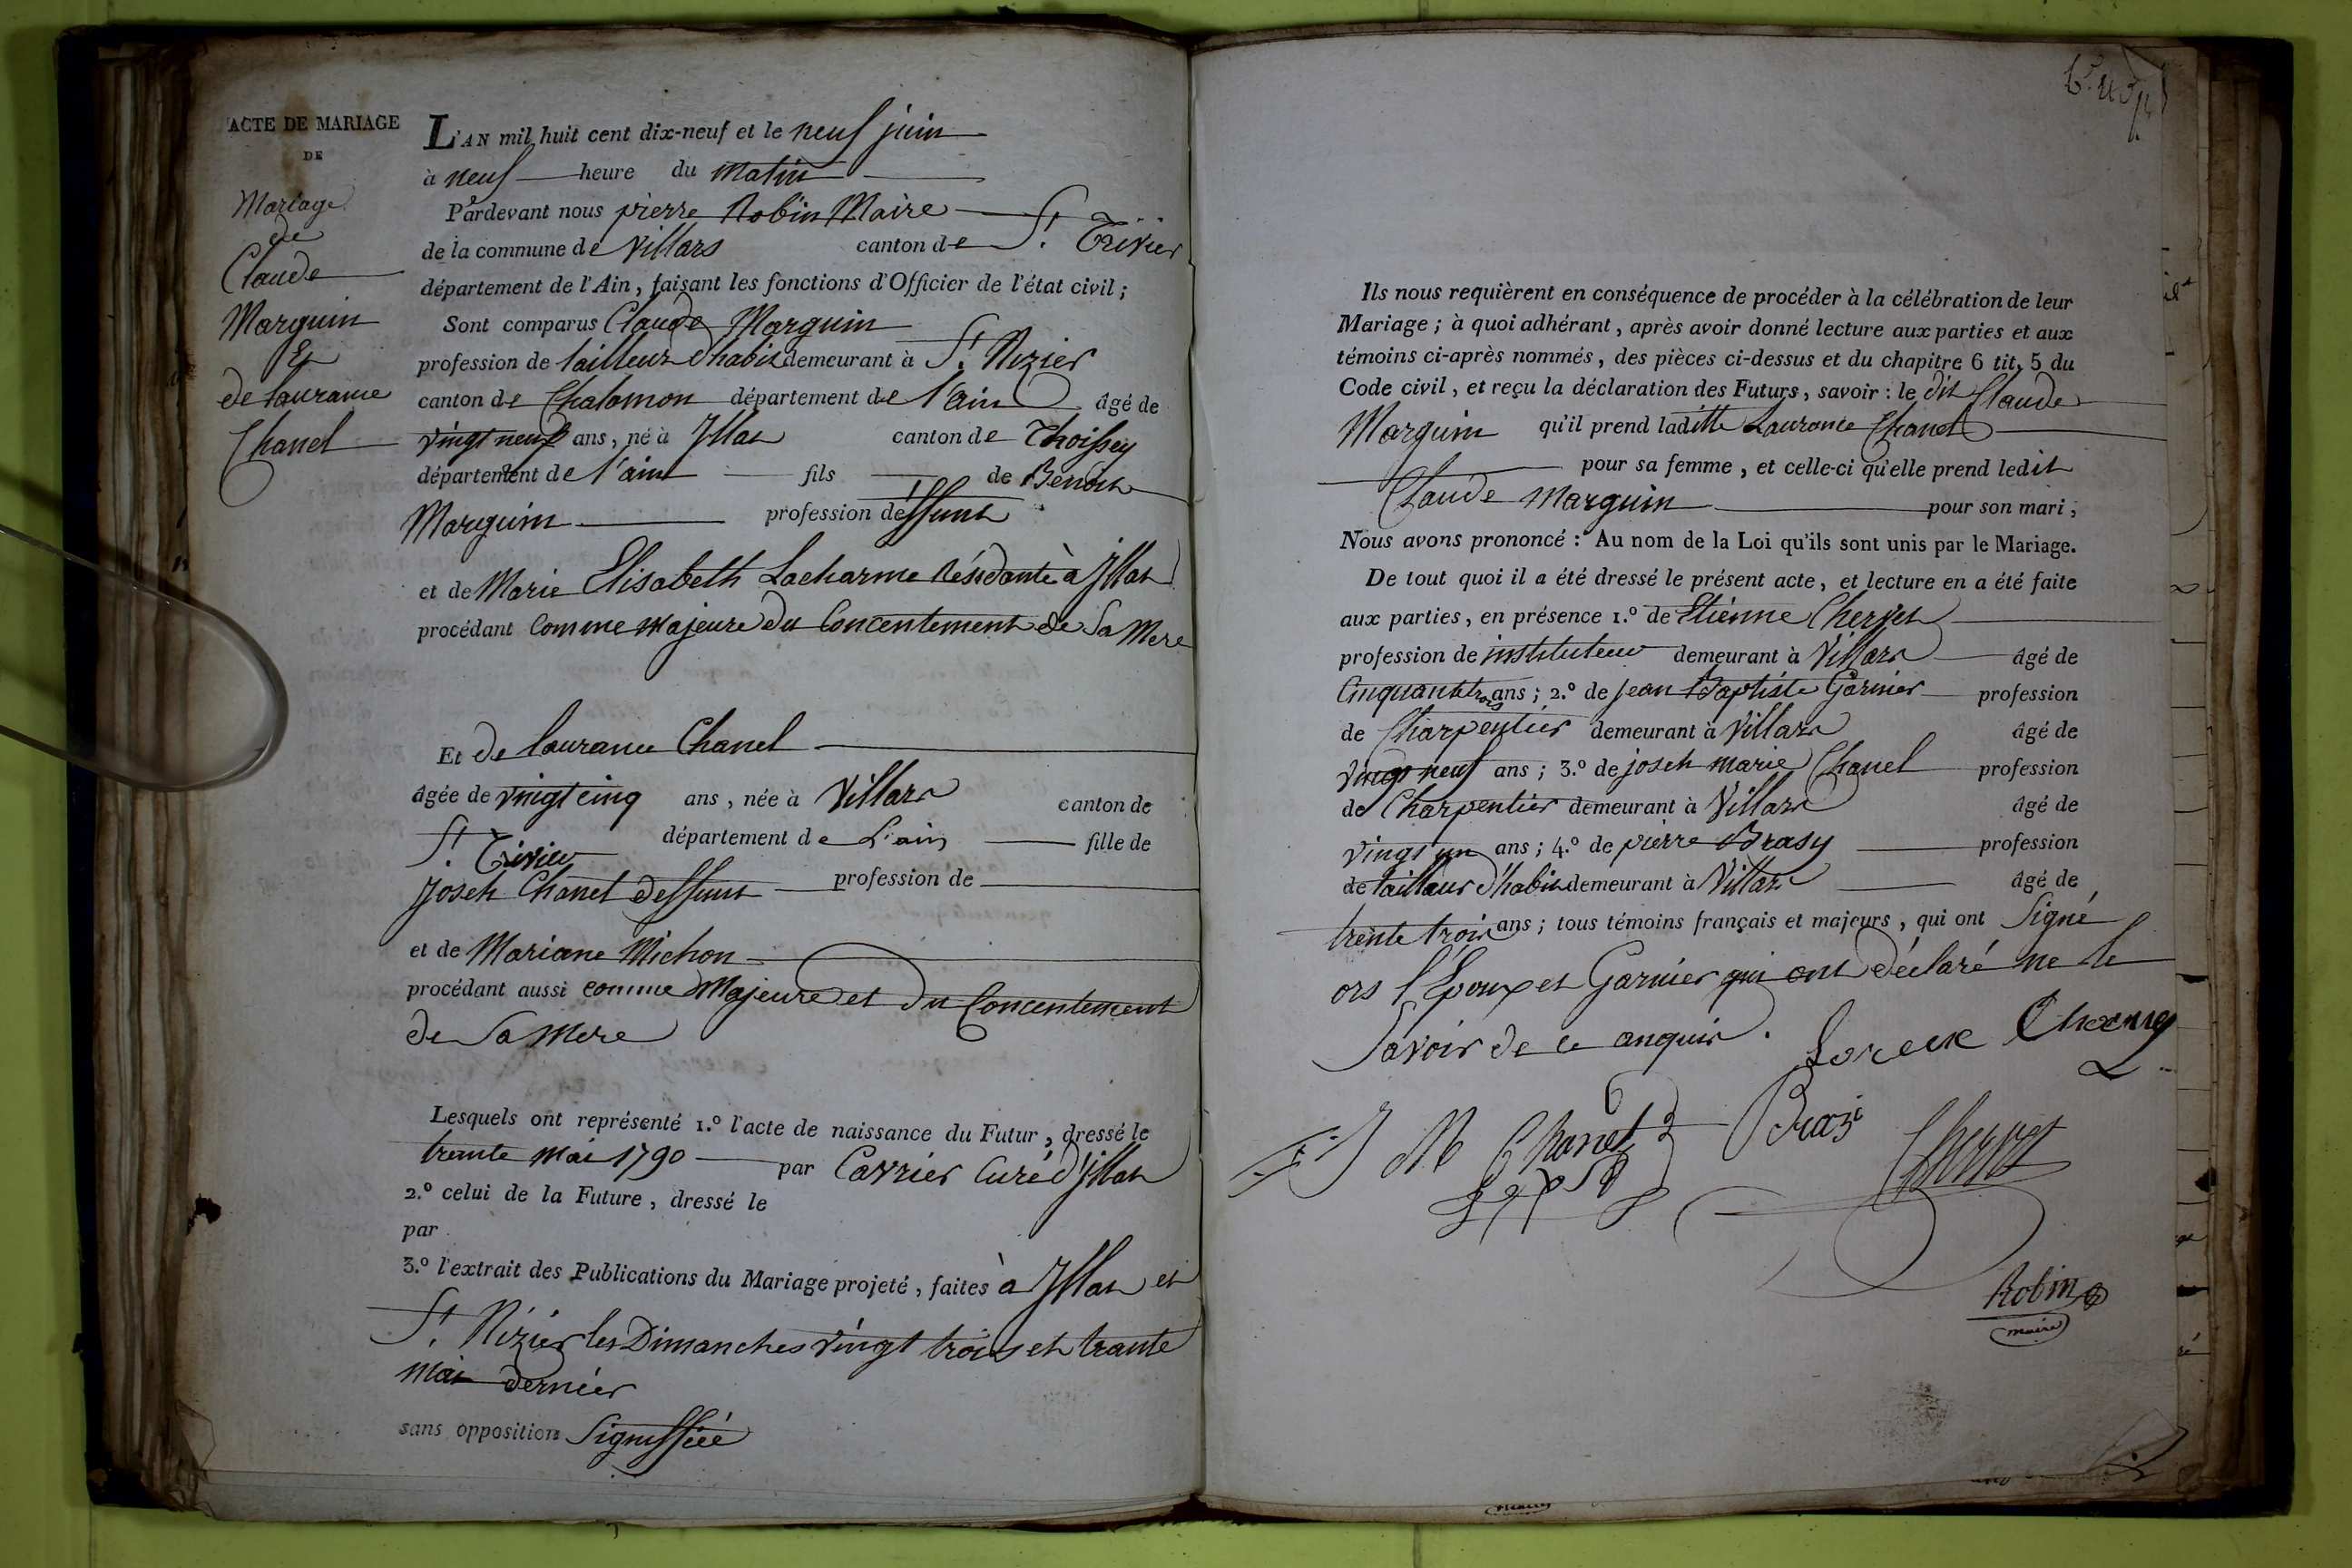 ACTE DE MARIAGE
DE
Mariage
de
Claude
Marguin
Et
de laurance
Chanel
L'AN mil huit cent dix-neuf et le neuf juin
à neuf heure du matin
Pardevant nous pierre Robin Maire
de la commune de Villars canton de St. Trivier
département de l'Ain, faisant les fonctions d'Officier de l'état civil;
Sont comparus Claude Marguin
profession de tailleur d'habit demeurant à St. Nizier
canton de Chalamon département de l'ain âgé de
vingt neuf ans, né à Jllat canton de Thoissey
département de l'ain fils de Benoit
Marguin profession déffunt
et de Marie Elisabeth Lacharme Résidante à Jllat
procédant comme majeure du Concentement de Sa Mere
Et de laurance Chanel
âgée de vingt cinq ans, née à Villars canton de
St. Trivier département de L'ain fille de
Joseh Chanel deffunt profession de
et de Mariane Michon
procédant aussi comme Majeure et du Concentement
de Sa Mere
Lesquels ont représenté 1.º l'acte de naissance du Futur, dressé le
trante mai 1790 par Carrier Curé d'Jllat
2.º celui de la Future, dressé le
par
3.º l'extrait des Publications du Mariage projeté, faites à Jllat et
St. Nizier les Dimanches vingt trois et trante
mai dernier
sans opposition Signiffiée
Ils nous requièrent en conséquence de procéder à la célébration de leur
Mariage; à quoi adhérant, après avoir donné lecture aux parties et aux
témoins ci-après nommés, des pièces ci-dessus et du chapitre 6 tit. 5 du
Code civil, et reçu la déclaration des Futurs, savoir: le dit Claude
Marguin qu'il prend laditte Laurance Chanel
pour sa femme, et celle-ci qu'elle prend ledit
Claude Marguin pour son mari;
Nous avons prononcé: Au nom de la Loi qu'ils sont unis par le Mariage.
De tout quoi il a été dressé le présent acte, et lecture en a été faite
aux parties, en présence 1.º de Etiénne Chervet
profession de instituteur demeurant à Villars âgé de
Cinquante trois ans; 2.º de Jean Baptiste Garnier profession
de Charpentier demeurant à Villars âgé de
vingt neuf ans; 3.º de joseh marie Chanel profession
de Charpentier demeurant à Villars âgé de
vingt un ans; 4.º de pierre Brasy profession
de tailleur d'habit demeurant à Villars âgé de
trente trois ans; tous témoins français et majeurs, qui ont Signé
ors l'Epoux et Garnier qui ont déclaré ne le
Savoir de ce anquis.
J M Chanel
Brazi
Chervet
Robin
maire